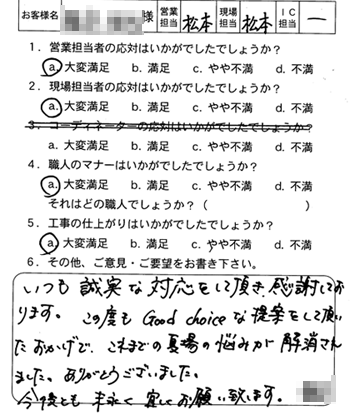 お客様名 様 営業担当 松本 現場担当 松本 IC担当 ー
1．営業担当者の応対はいかがでしたでしょうか？
a. 大変満足 b. 満足 c. やや不満 d. 不満
2．現場担当者の応対はいかがでしたでしょうか？
a. 大変満足 b. 満足 c. やや不満 d. 不満
3．コーディネーターの応対はいかがでしたでしょうか？
a. 大変満足 b. 満足 c. やや不満 d. 不満
4．職人のマナーはいかがでしたでしょうか？
a. 大変満足 b. 満足 c. やや不満 d. 不満
それはどの職人でしょうか？（ ）
5．工事の仕上がりはいかがでしたでしょうか？
a. 大変満足 b. 満足 c. やや不満 d. 不満
6．その他、ご意見・ご要望をお書き下さい。
いつも誠実な対応をして頂き、感謝してお
ります。この度も Good choice な提案をして頂い
たおかげで、これまでの夏場の悩みが解消され
ました。ありがとうございました。
今後とも末永く宜しくお願い致します。